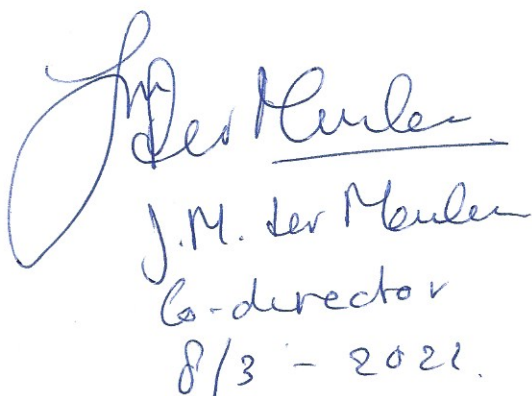 JM der Meulen
J.M. ter Meulen
Co-director
8/3 - 2021.